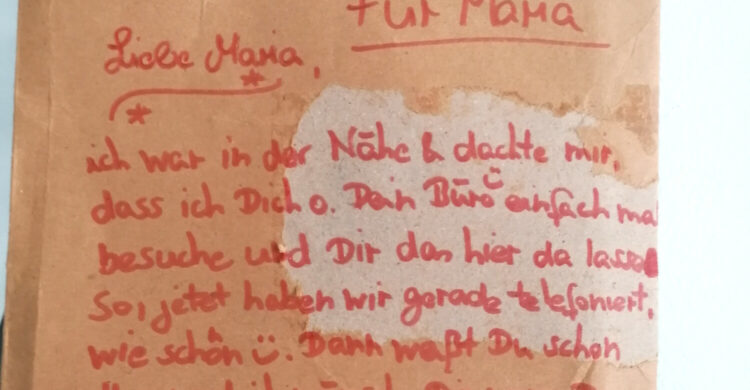 Für Maria
Liebe Maria,
ich war in der Nähe & dachte mir,
dass ich Dich o. Dein Büro einfach ma
besuche und Dir das hier da lasse
So, jetzt haben wir gerade telefoniert,
wie schön ü. Dann waßt Du schon